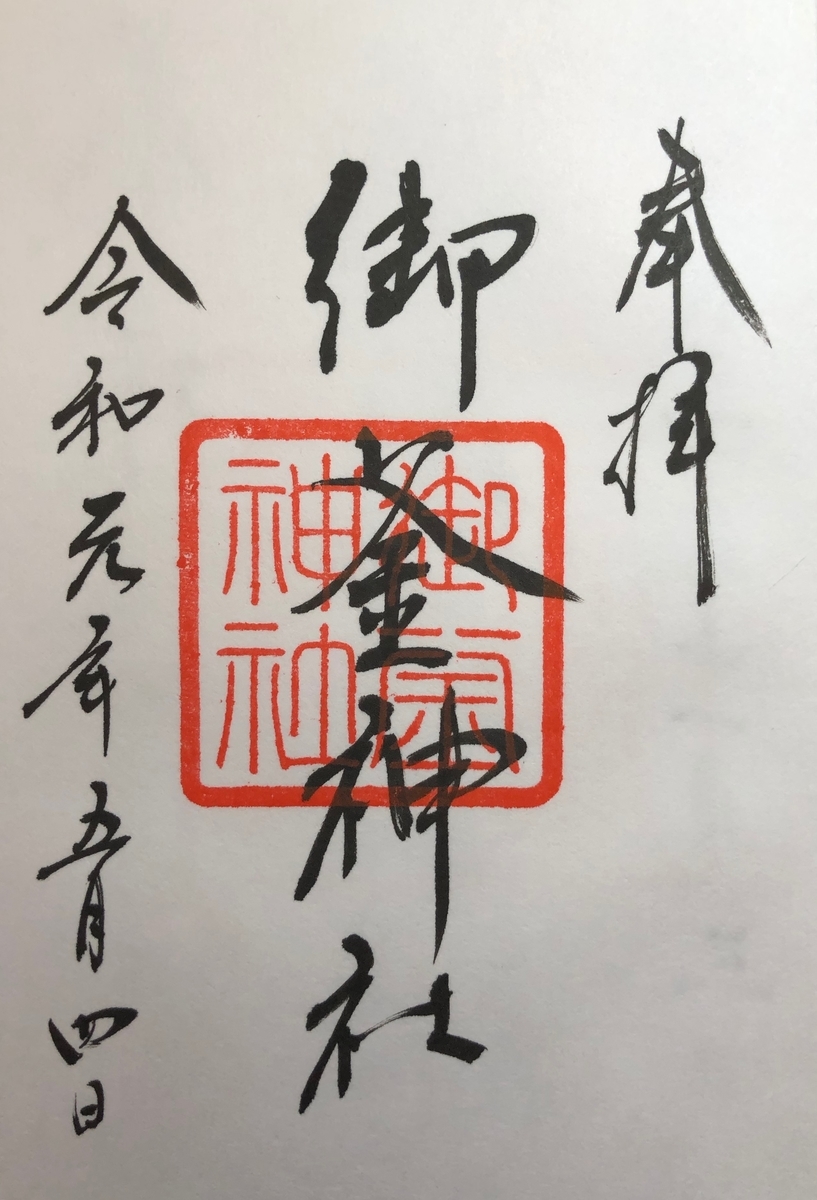 奉拝
御釜神社
御釜神社
令和元年五月四日